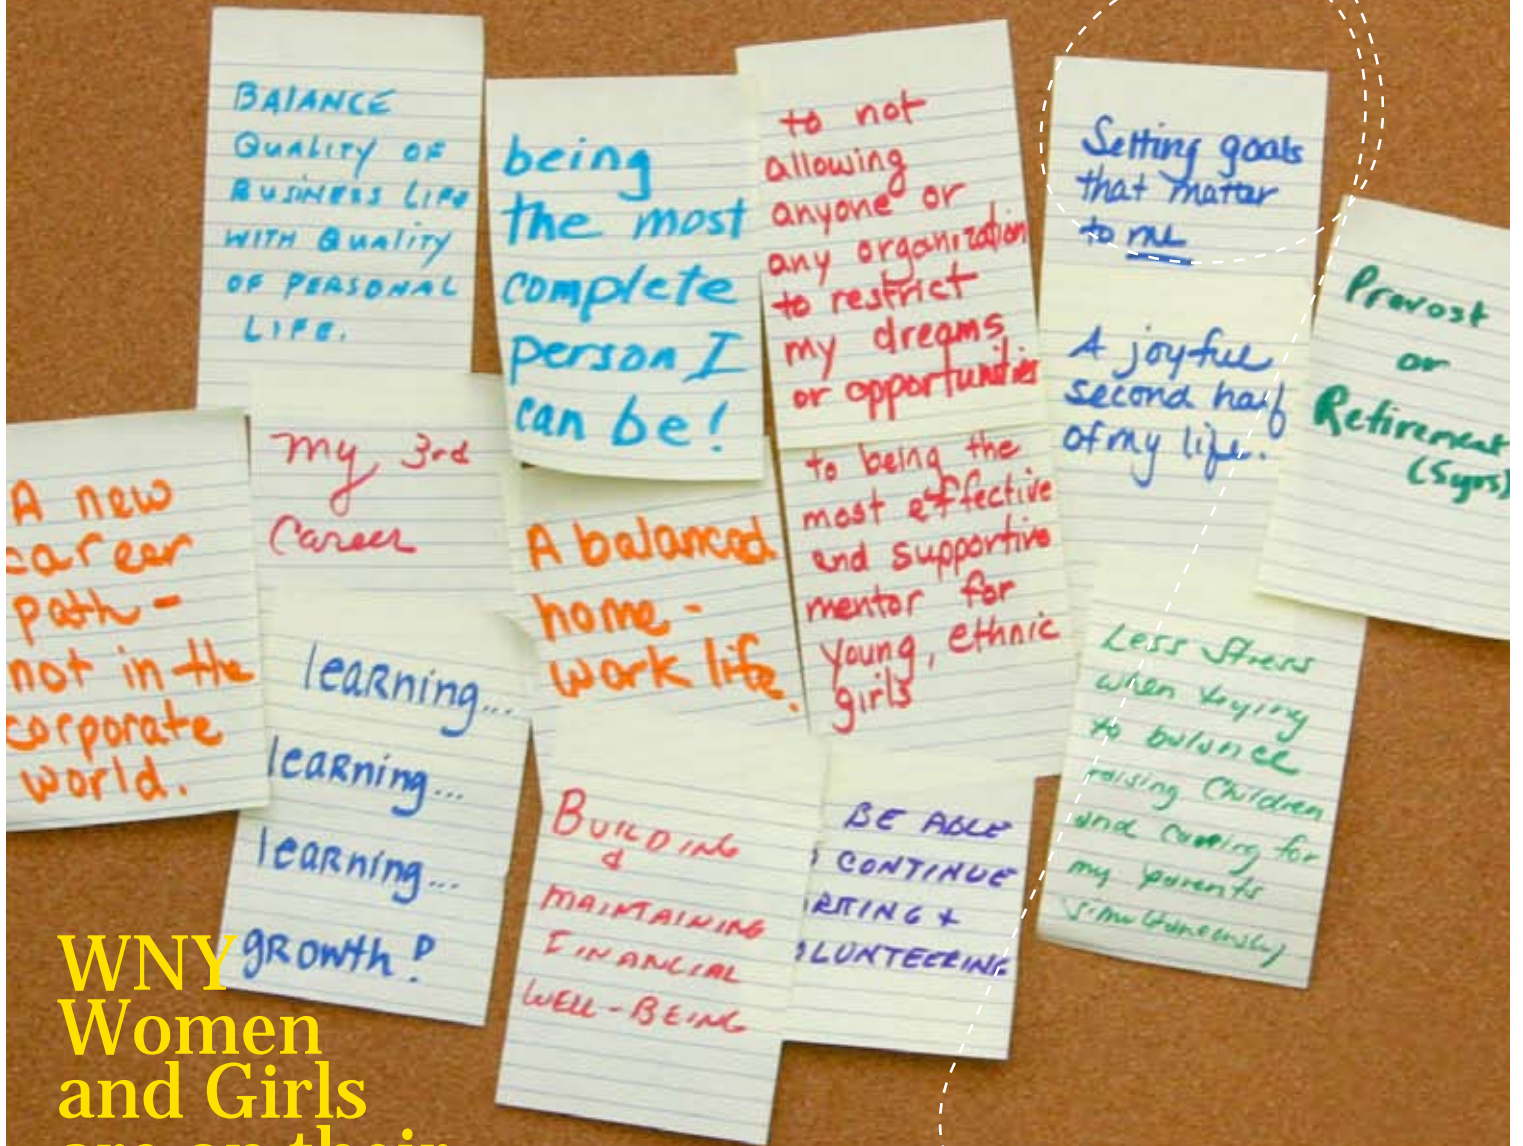 BALANCE
QUALITY OF
BUSINESS LIFE
WITH QUALITY
OF PERSONAL
LIFE.
being
the most
complete
person I
can be!
to not
allowing
anyone or
any organization
to restrict
my dreams
or opportunities
Setting goals
that matter
to me
A joyful
second half
of my life.
Provost
or
Retirement
(5yrs)
A new
career
path -
not in the
corporate
world.
my 3rd
Career
A balanced
home -
work life.
to being the
most effective
and supportive
mentor for
young, ethnic
girls
learning...
learning...
learning...
growth!
BUILDING
&
MAINTAINING
FINANCIAL
WELL-BEING
BE ABLE
CONTINUE
RTING +
LUNTEERING
Less Stress
when trying
to balance
raising Children
and caring for
my parents
simultaneously
WNY
Women
and Girls
are on their